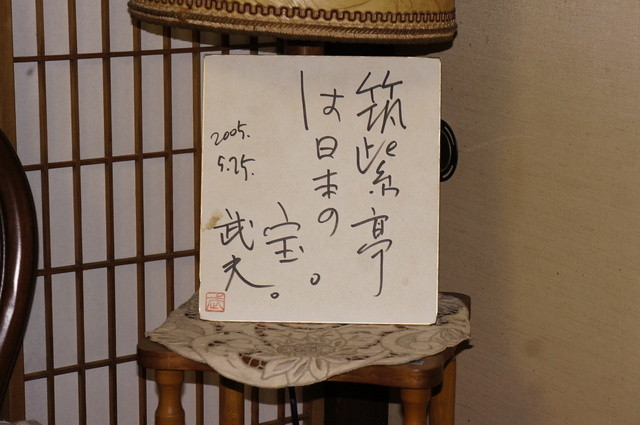 筑紫亭
は日本の
宝。
武夫。
2005.
5.25.